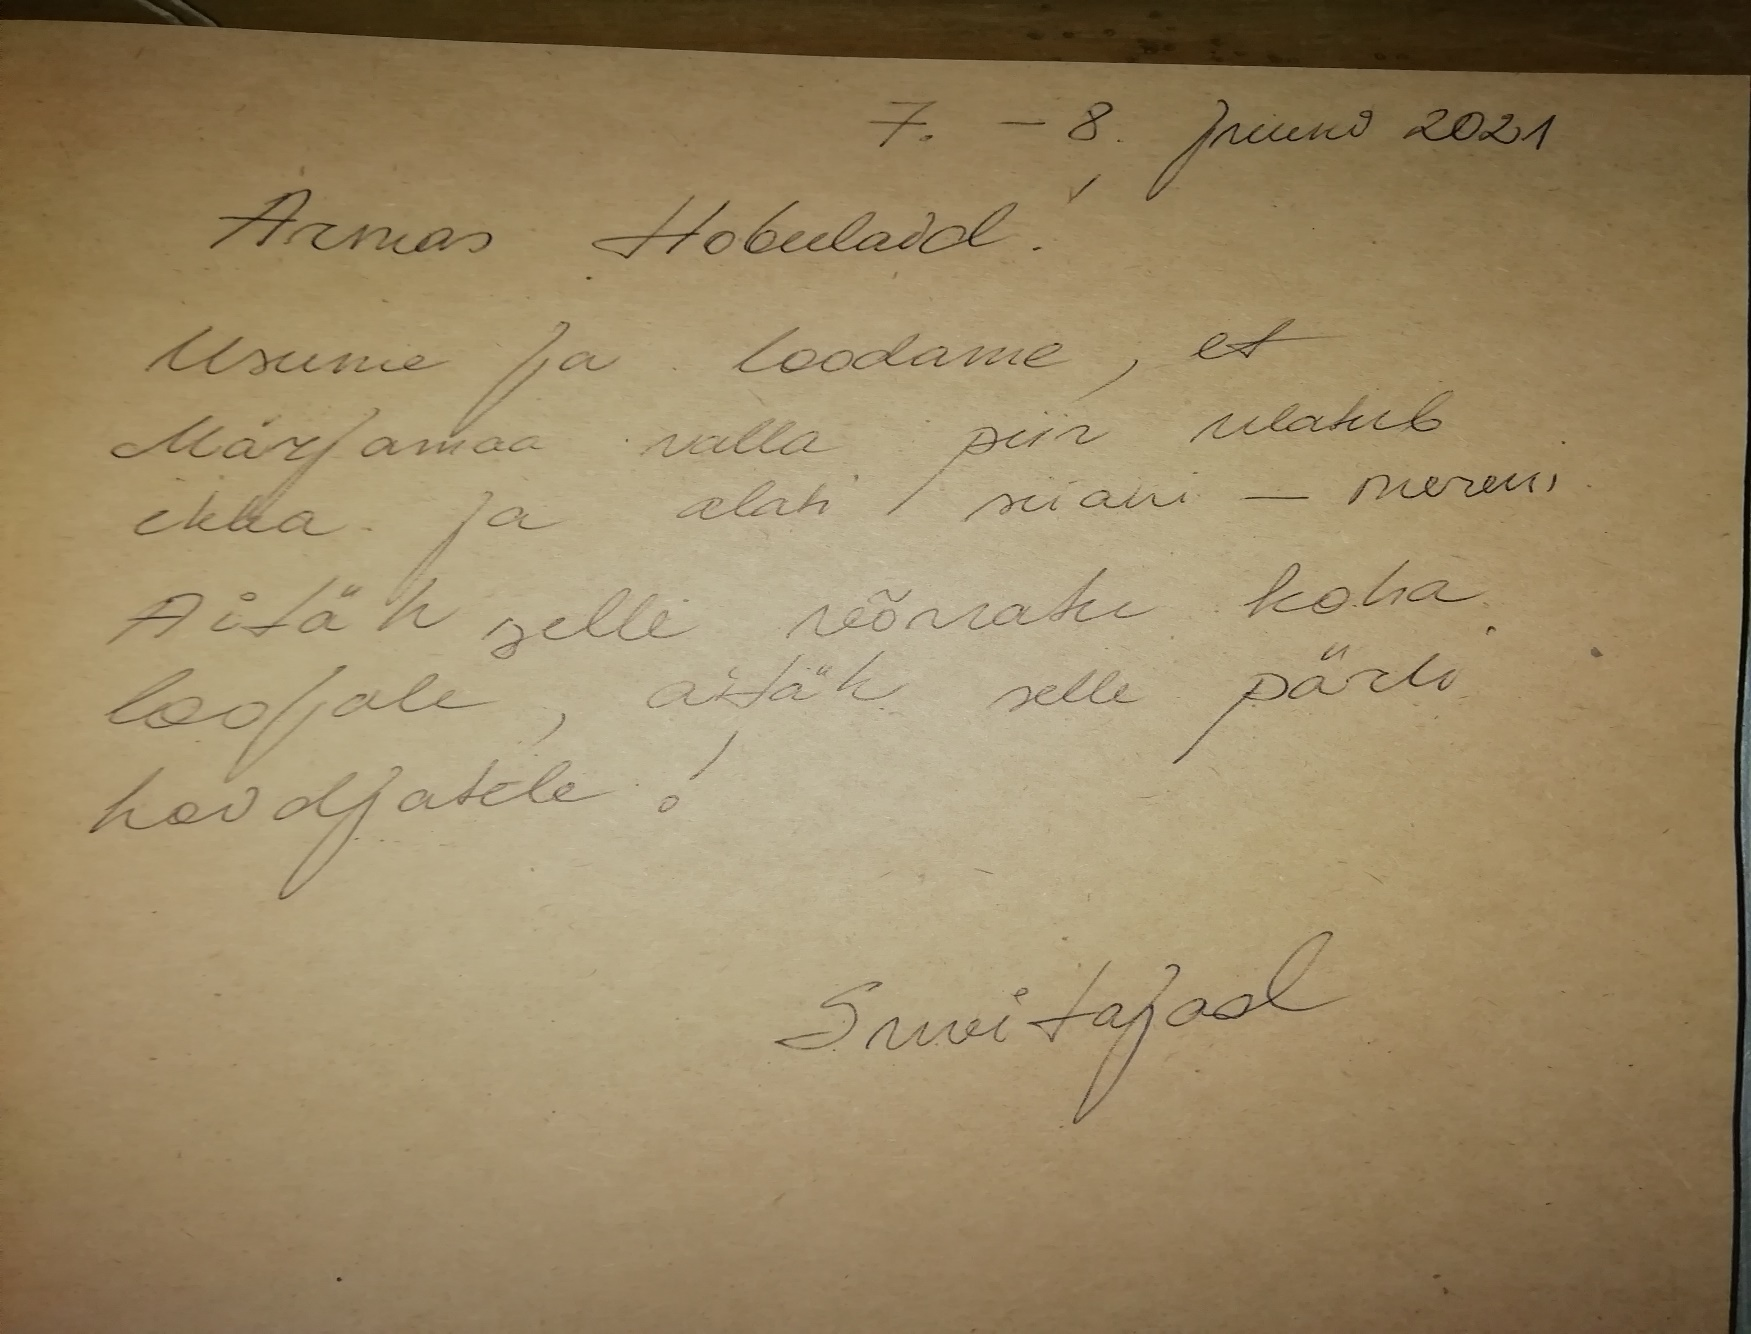 7. - 8. juuni 2021
Armas Hobulaid!
Usume ja loodame, et
Märjamaa valla piir ulatub
ikka ja alati siiani - mereni.
Aitäh selle võrratu koha
loojale, aitäh selle pärli
hoidjatele!
Suvitajad